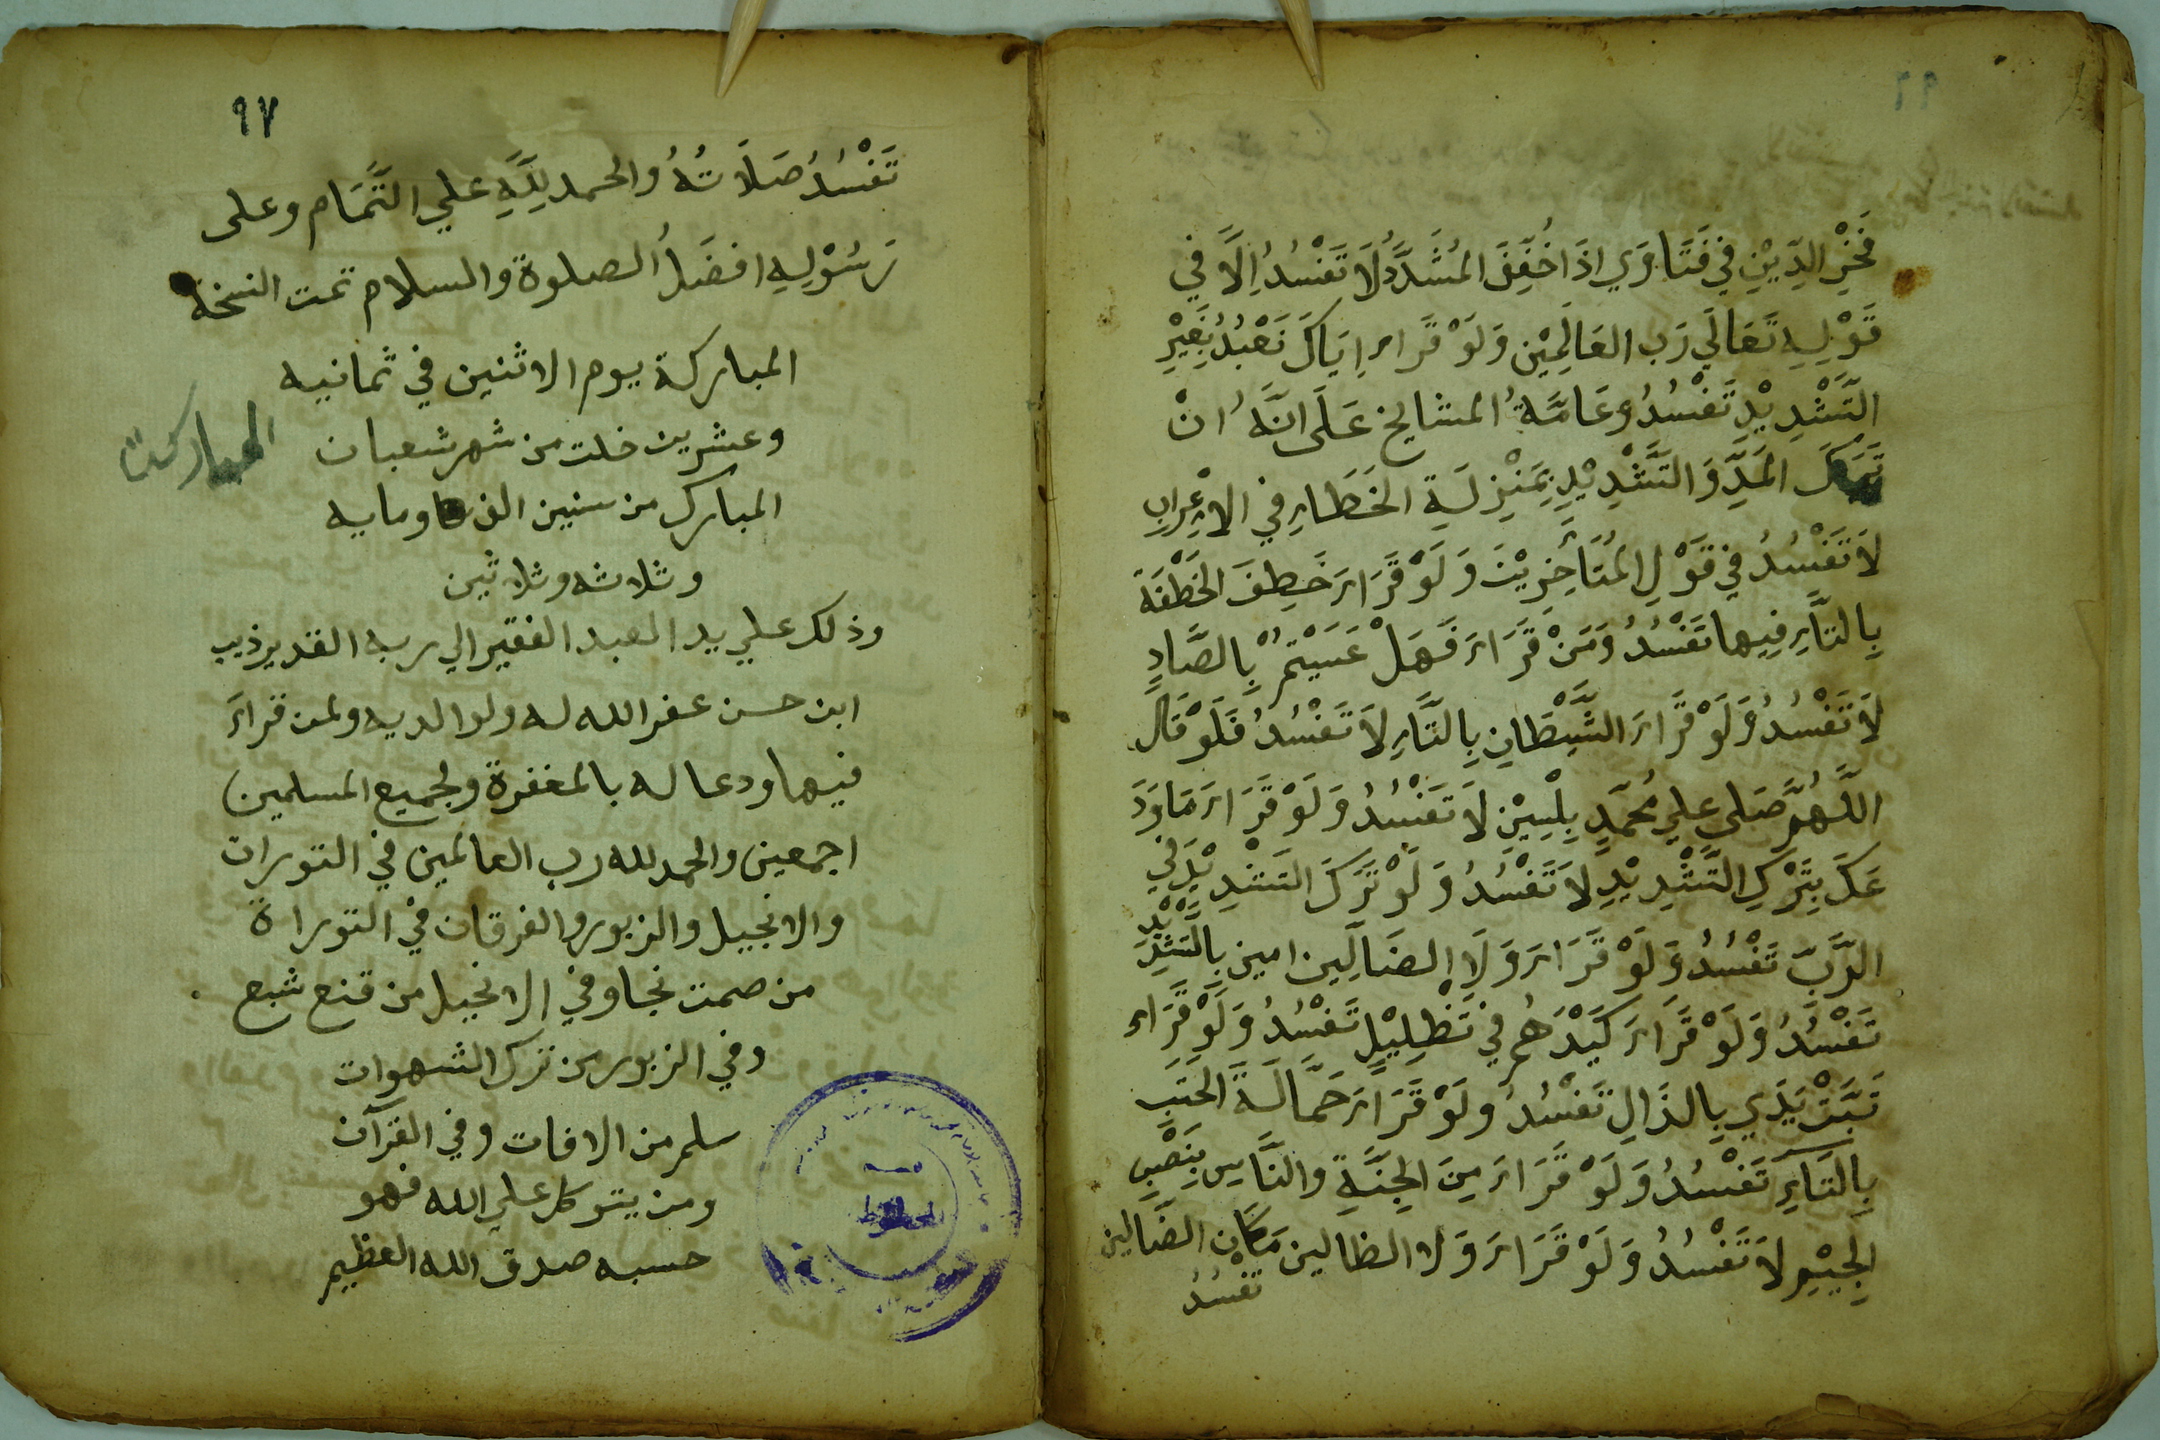 ٩٦
فَخْرِ الدِّيْنِ فِي فَتَاوَي اذَا خُفِّفَ المُشَدَّدُ لَا تَفْسُدُ اِلَّا فِي
قَوْلِهِ تَعَالَي رَب العَالَمِيْن وَلَوْ قَراء اِيَاكَ نَعْبُدُ بِغَيْرِ
التَّشْدِيْدِ تَفْسُدُ وعَامَّةُ المشايخ عَلَى انَّهُ انْ
تَرَكَ المَدَّ وَالتَّشْدِيْدِ بِمَنْزِلَةِ الخَطَاءِ فِي الاِعْرَابِ
لَا تَفْسُدُ فِي قَوْلِ المُتَأَخِرِيْنَ وَلَوْ قَرَاءَ خَطِفَ الخَطْفَةَ
بِالتَّاءِ فِيهَا تَفْسُدُ وَمَنْ قَرَاءَ فَهَلْ عَسَيْتُمْ بِالصَّادِ
لَا تَفْسُدُ وَلَوْ قَرَاءَ الشَّيْطَانِ بِالتَّاءِ لَا تَفْسُدُ فَلَوْ قَال
اللَّهُمَّ صَلي علي مُحَمَّدٍ بِلْسِيْنِ لَا تَفْسُدُ وَلَوْ قَرَاءَ مَا وَدَ
عَكَ بِتَرْكِ التَّشْدِيْدِ لَا تَفْسُدُ وَلَوْ تَرَكَ التَشْدِيْدَ فِي
الرَّبّ تَفْسُدُ وَلَوْ قَرَاءَ وَلَا الضَالِّين امين بِالتَشْدِيْدِ
تَفْسُدُ وَلَوْ قَرَاءَ كَيْدَهُمْ فِي تَظْلِيْلٍ تَفْسُدُ وَلَوْ قَرَاء
تَبَّتْ يَدَي بِالذَالِ تَفْسُدُ ولَوْ قَرَاءَ حَمَّالَةَ الحَتَبِ
بِالتَاءِ تَفْسُدُ وَلَوْ قَرَاءَ مِنَ الجِنَّةِ والنَّاسِ بِنَصْبِ
الجِيْمِ لَا تَفْسُدُ وَلَوْ قَرَاءَ وَلا الظالين مَكَان الضَّالين
تفْسُدُ
٩٧
تَفْسُدُ صَلَاتُهُ والحمد لِلَّهِ علي التَّمَام وعلى
رَسُوْلِهِ افضَلُ الصلوة والسلام تمت النسخة
المباركة يوم الاثنين في ثمانيه
وعشرين خلت من شهر شعبان
المبارك من سنين الف ومايه
وثلاثه وثلاثين
المباركة
وذلك علي يد العبد الفقير الي ربه القدير ذيب
ابن حسن غفر الله له ولوالديه ولمن قراءَ
فيها ودعا له بالمغفرة ولجميع المسلمين
اجمعين والحمد لله رب العالمين في التورات
والانجيل والزبور والفرقان في التوراة
من صمت نجا وفي الانجيل من قنع شبع
وفي الزبور من ترك الشهوات
سلم من الافات وفي القرآن
ومن يتوكل علي الله فهو
حسبه صدق الله العظيم